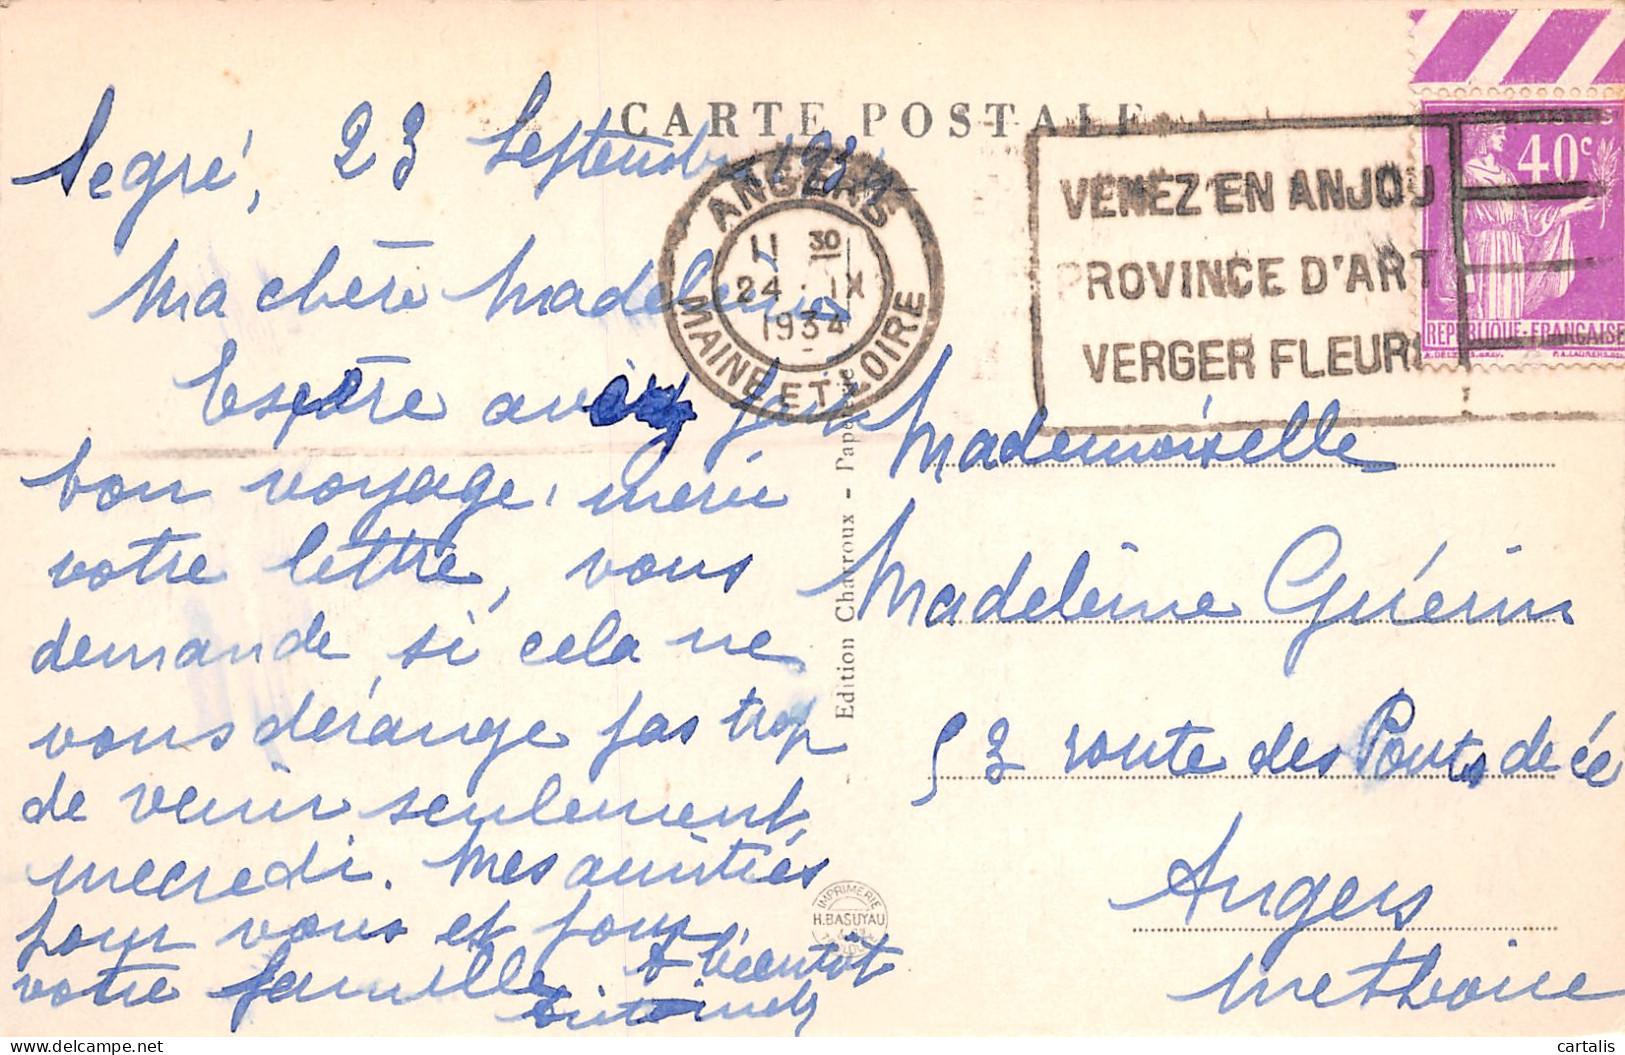 CARTE POSTALE
Segré, 23 Septembre 1934
Ma chère Madeleine
Espère avoir fait
bon voyage, merci
votre lettre, vous
demande si cela ne
vous dérange pas trop
de venir seulement
mecredi. Mes amitiés
pour vous et pour
votre famille A bientôt
ANGERS
11 30
24 IX
1934
MAINE ET LOIRE
VENEZ EN ANJOU
PROVINCE D'ART
VERGER FLEURI
40c
REPUBLIQUE·FRANCAISE
Edition Charroux -
Mademoiselle
Madeleine Guérin
53 route des Ponts de cé
Angers
Met Loire
IMPRIMERIE
H.BASUYAU
cartalis delcampe.net